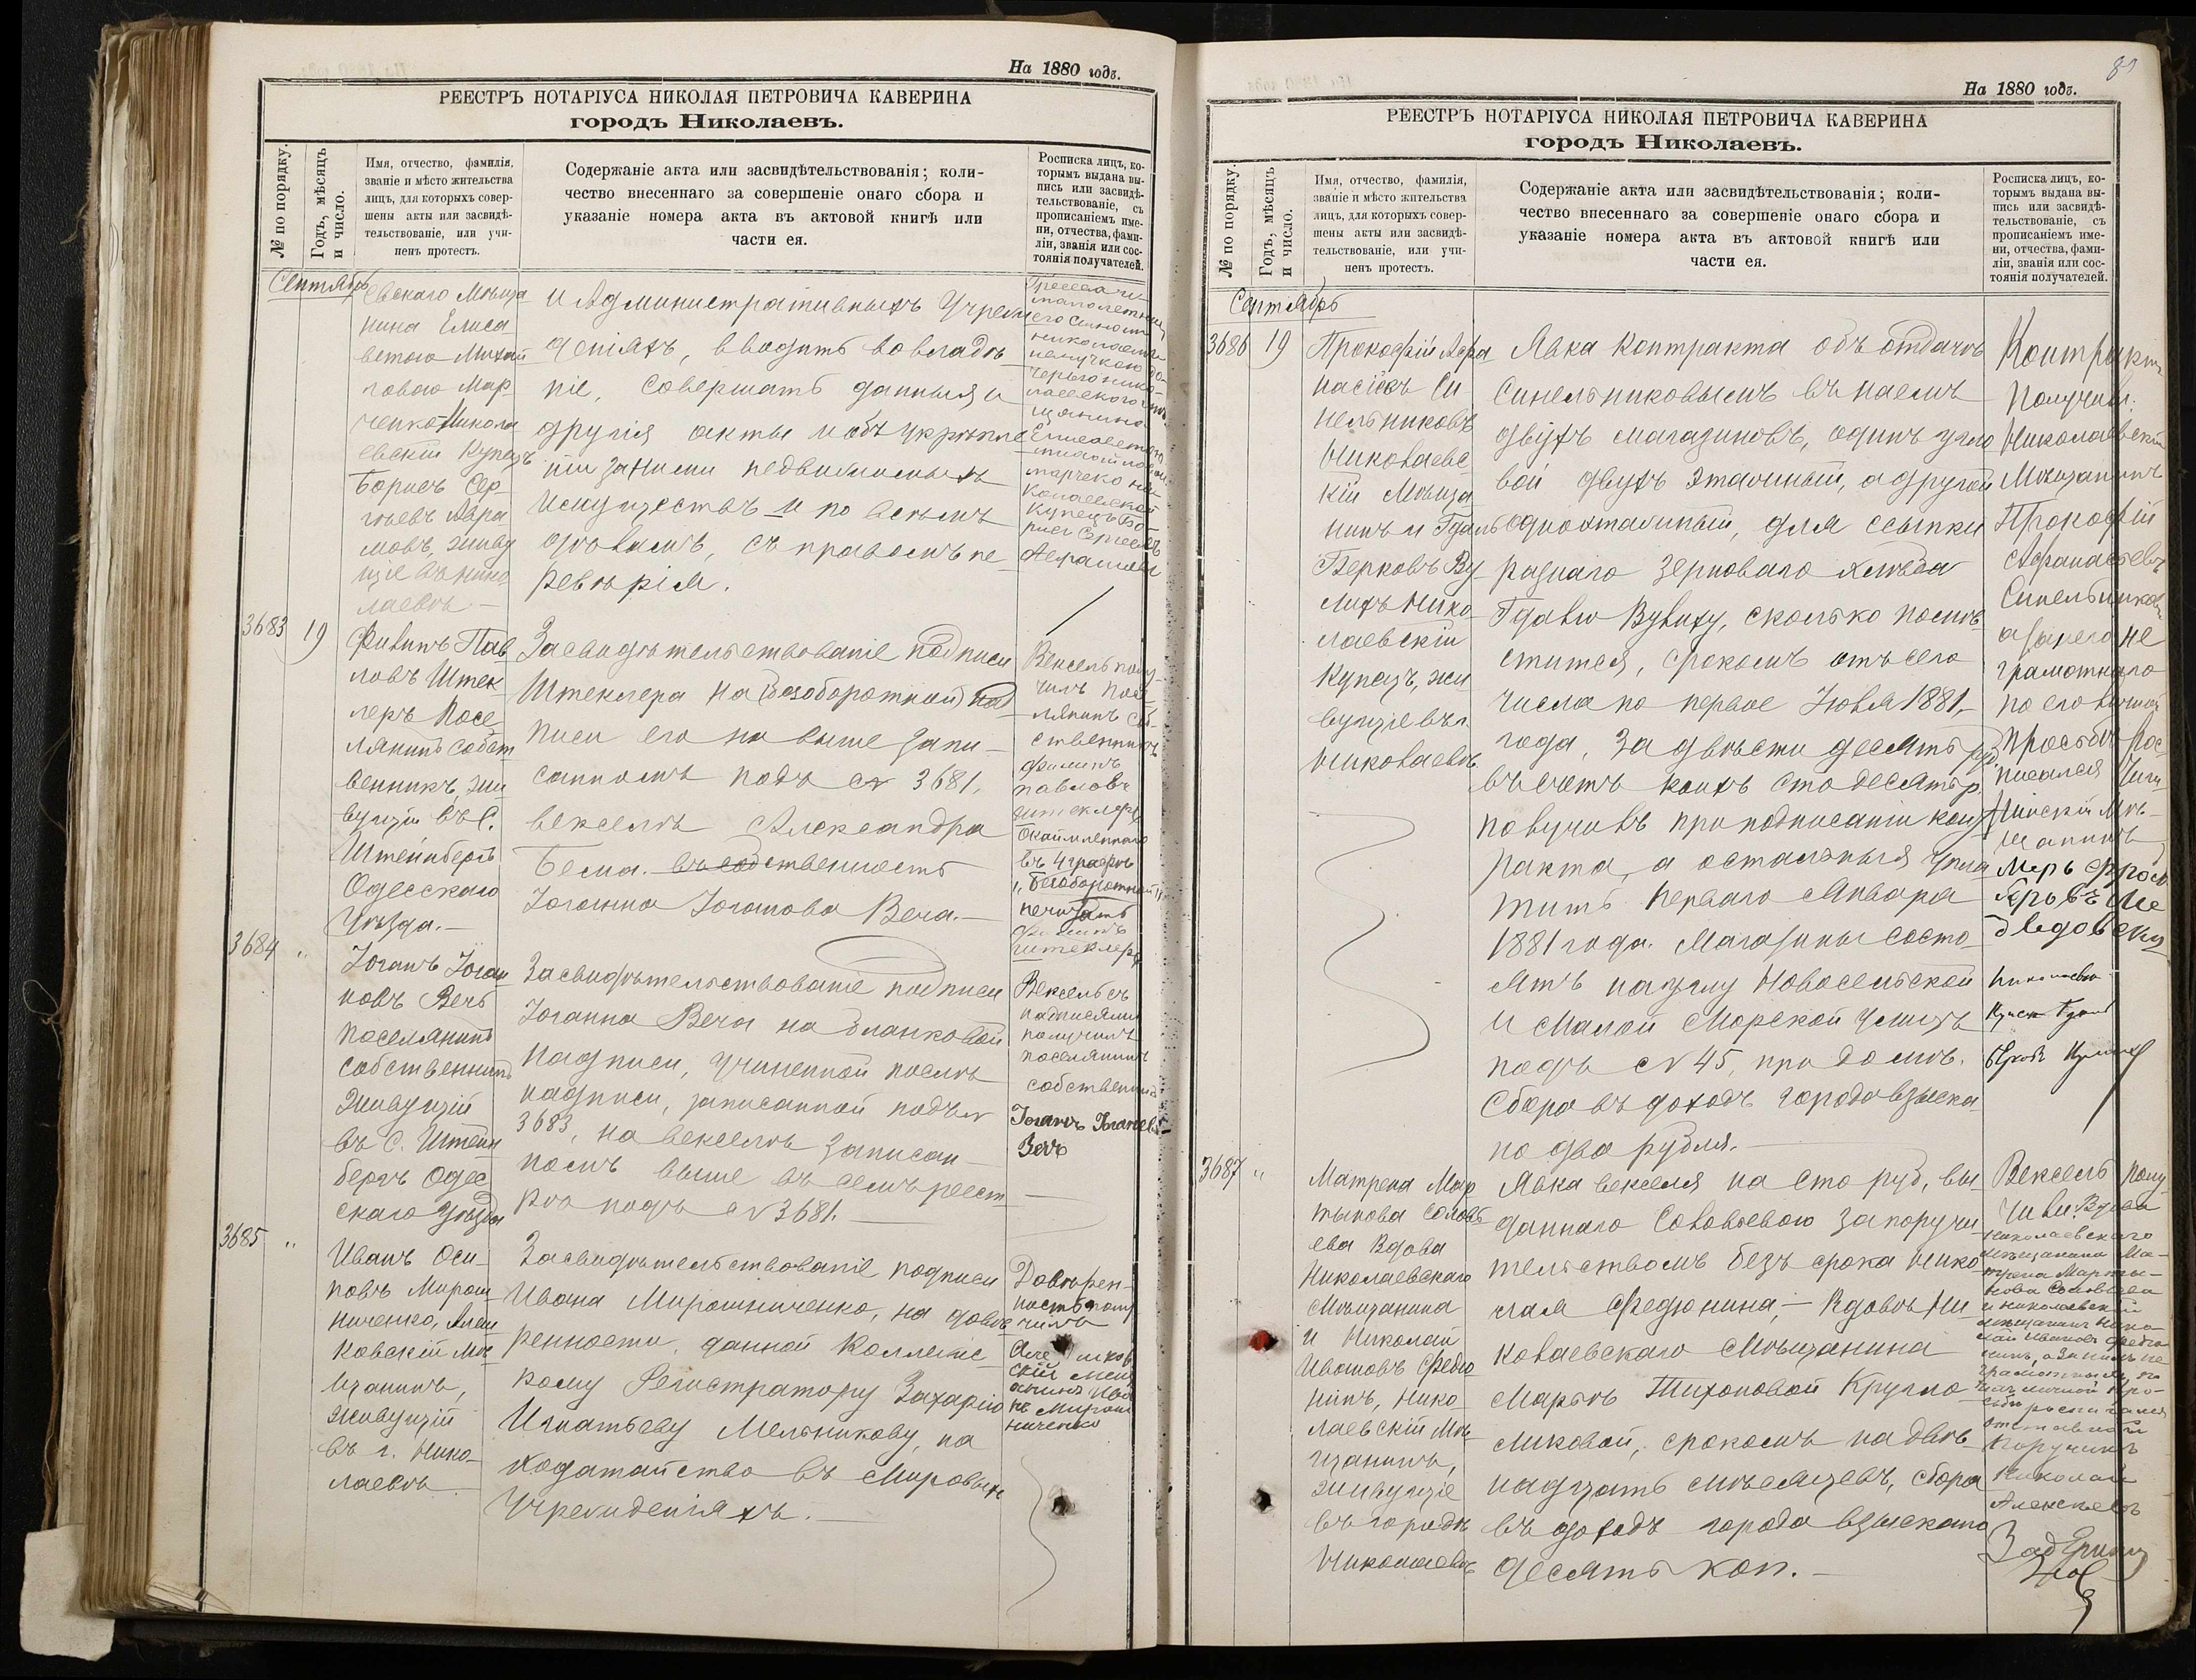 На 1880 годъ.
РЕЕСТРЪ НОТАРІУСА НИКОЛАЯ ПЕТРОВИЧА КАВЕРИНА
городъ Николаевъ.
№ по порядку.
Годъ, мѣсяцъ
и число.
Имя, отчество, фамилія,
званіе и мѣсто жительства
лицъ, для которыхъ совер-
шены акты или засвидѣ-
тельствованіе, или учи-
ненъ протестъ.
Содержаніе акта или засвидѣтельствованія; коли-
чество внесеннаго за совершеніе онаго сбора и
указаніе номера акта въ актовой книгѣ или
части ея.
Росписка лицъ, ко-
торымъ выдана вы-
пись или засвидѣ-
тельствованіе, съ
прописаніемъ име-
ни, отчества, фами-
ліи, званія или сос-
тоянія получателей.
Сентябрь
евскаго Мѣща
нина Елиса
ветою Михай
ловою Мар
ченко Никола
евскій Купецъ
Борисъ Сер
гѣевъ Авра
мовъ, живу
щіе въ Нико
лаевѣ —
и Административныхъ Учреж
деніяхъ, вводить во владѣ
ніе, совершать данныя и
другія акты и объ укрѣпле
ніи за ними недвижимыхъ
имуществъ и по всѣмъ
дѣламъ, съ правомъ пе
редовѣрія.
3683
19
Филипъ Пав
ловъ Штек
леръ Посе
лянинъ собст
венникъ, жи
вущій въ С.
Штейнбергъ
Одесскаго
Уѣзда. —
Засвидѣтельствованіе подписи
Штеклера на (безоборотной) над
писи его на выше запи-
санномъ подъ № 3681,
векселѣ Александра
Бема. въ собственность
Іоганна Іоганова Веча. —
Вексель полу-
чилъ посе
лянинъ соб
ственникъ
Филипъ
Павловъ
Штеклеръ
въ 4 графѣ
„Безоборотной"
не читать
Филипъ
Штеклеръ
3684
"
Іоганъ Іоган
новъ Вечъ
Поселянинъ
собственникъ
Живущій
въ С. Штейн
бергъ Одес
скаго Уѣзда
Засвидѣтельствованіе подписи
Іоганна Веча на бланковой
надписи, учиненной послѣ
надписи, записанной подъ №
3683, на векселѣ записан-
номъ выше въ семъ реест
рѣ подъ № 3681. —
Вексель съ
надписями
получилъ
поселянинъ
собственникъ
3685
"
Иванъ Оси-
повъ Мирош-
ниченко, Алеш
ковскій Мѣ
щанинъ,
живущій
въ г. Нико-
лаевѣ
Засвидѣтельствованіе подписи
Ивана Мирошниченко, на довѣ
ренности, данной Коллежс-
кому Регистратору Захарію
Игнатьеву Мельникову, на
ходатайство въ Мировыхъ
Учрежденіяхъ. —
Довѣрен-
ность полу
чилъ
Алешков
скій мещ
анинъ Ива
нъ Мирош
ниченко
На 1880 годъ.
РЕЕСТРЪ НОТАРІУСА НИКОЛАЯ ПЕТРОВИЧА КАВЕРИНА
городъ Николаевъ.
№ по порядку.
Годъ, мѣсяцъ
и число.
Имя, отчество, фамилія,
званіе и мѣсто жительства
лицъ, для которыхъ совер-
шены акты или засвидѣ-
тельствованіе, или учи-
ненъ протестъ.
Содержаніе акта или засвидѣтельствованія; коли-
чество внесеннаго за совершеніе онаго сбора и
указаніе номера акта въ актовой книгѣ или
части ея.
Росписка лицъ, ко-
торымъ выдана вы-
пись или засвидѣ-
тельствованіе, съ
прописаніемъ име-
ни, отчества, фами-
ліи, званія или сос-
тоянія получателей.
Сентябрь
3686
19
Прокофій Афа
насіевъ Си
нельниковъ
Николаевс
кій Мѣща
нинъ и Гдаль
Берковъ Ву
лихъ Нико
лаевскій
Купецъ, жи
вущіе въ г.
Николаевѣ
Явка контракта объ отдачѣ
Синельниковымъ въ наемъ
двухъ магазиновъ, одинъ угло
вой двухъ этажный, а другой
одноэтажный, для ссыпки
разнаго зерноваго хлѣба
Гдалю Вулиху, сколько помѣ
стится, срокомъ отъ сего
числа по первое Іюля 1881,
года, за двѣсти десять руб.
въ счетъ коихъ сто десять р.
получилъ при подписаніи конт
ракта, а остальныя упла
тить перваго Января
1881 года. Магазины состо
ятъ на углу Новосельской
и Малой Морской улицъ
подъ № 45, при домѣ.
Сбора въ доходъ города взыска
но два рубля. —
Контрактъ
получилъ:
Николаевскій
Мѣщанинъ
Прокофій
Афанасьевъ
Синельников
а за него не
грамотнаго
по его личной
просьбѣ рос
писался
Мѣ-
щанинъ
3687
"
Матрена Мар
тынова Соловь
ева Вдова
Николаевскаго
Мѣщанина
и Николай
Ивановъ Федю
нинъ, Нико-
лаевскій Мѣ
щанинъ,
живущіе
въ городѣ
Николаевѣ
Явка векселя на сто руб, вы-
даннаго Соловьевою за поручи
тельствомъ безъ срока Нико
лая Федюнина, — Вдовѣ Ни
колаевскаго Мѣщанина
Марьѣ Тихоновой Кругло
ликовой, срокомъ на двѣ-
надцать мѣсяцевъ, сбора
въ доходъ города взыскано
десять коп. —
Вексель полу
чили: Вдова
Николаевскаго
мѣщанина Ма-
трена Марты-
нова Соловьева
и Николаевскій
мѣщанинъ Нико-
лай Ивановъ Федю
нинъ, а за нихъ не
грамотныхъ по
ихъ личной про-
сьбѣ росписался
отставной
Поручикъ
Николай
Алексѣевъ